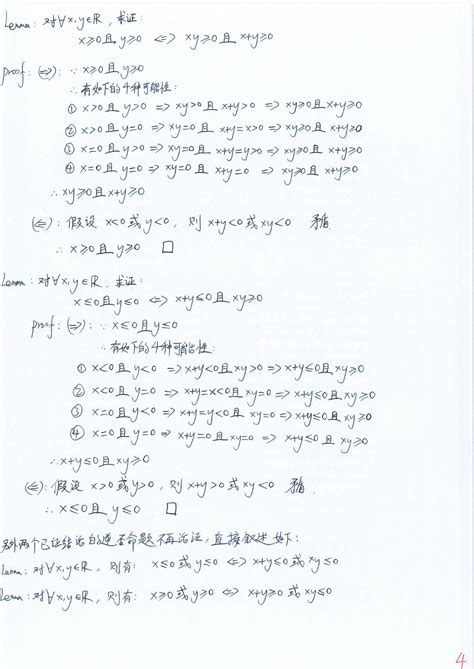 Lemma：对∀x,y∈ℝ，求证：
x≥0且y≥0 <=> xy≥0且x+y≥0
proof：(=>)：∵ x≥0且y≥0
∴有如下的4种可能性：
① x>0且y>0 => xy>0且x+y>0 => xy≥0且x+y≥0
② x>0且y=0 => xy=0且x+y=x>0 => xy≥0且x+y≥0
③ x=0且y>0 => xy=0且x+y=y>0 => xy≥0且x+y≥0
④ x=0且y=0 => xy=0且x+y=0 => xy≥0且x+y≥0
∴ xy≥0且x+y≥0
(<=)：假设 x<0或y<0，则 x+y<0或xy<0 矛盾.
∴ x≥0且y≥0 □
Lemma：对∀x,y∈ℝ，求证：
x≤0且y≤0 <=> x+y≤0且xy≥0
proof：(=>)：∵ x≤0且y≤0
∴有如下的4种可能性：
① x<0且y<0 => x+y<0且xy>0 => x+y≤0且xy≥0
② x<0且y=0 => x+y=x<0且xy=0 => x+y≤0且xy≥0
③ x=0且y<0 => x+y=y<0且xy=0 => x+y≤0且xy≥0
④ x=0且y=0 => x+y=0且xy=0 => x+y≤0且xy≥0
∴x+y≤0且xy≥0
(<=)：假设 x>0或y>0，则x+y>0或xy<0 矛盾.
∴ x≤0且y≤0 □
另外两个已证结论的逆否命题不再论证，直接叙述如下：
Lemma：对∀x,y∈ℝ，则有： x≤0或y≤0 <=> x+y≤0或xy≤0
Lemma：对∀x,y∈ℝ，则有： x≥0或y≥0 <=> x+y≥0或xy≤0
4